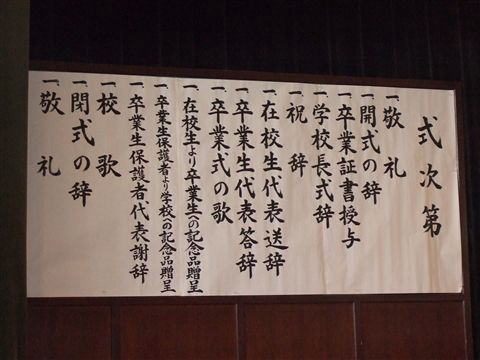 式次第
一、敬礼
一、開式の辞
一、卒業証書授与
一、学校長式辞
一、祝辞
一、在校生代表送辞
一、卒業生代表答辞
一、卒業式の歌
一、在校生より卒業生への記念品贈呈
一、卒業生保護者より学校への記念品贈呈
一、卒業生保護者代表謝辞
一、校歌
一、閉式の辞
一、敬礼